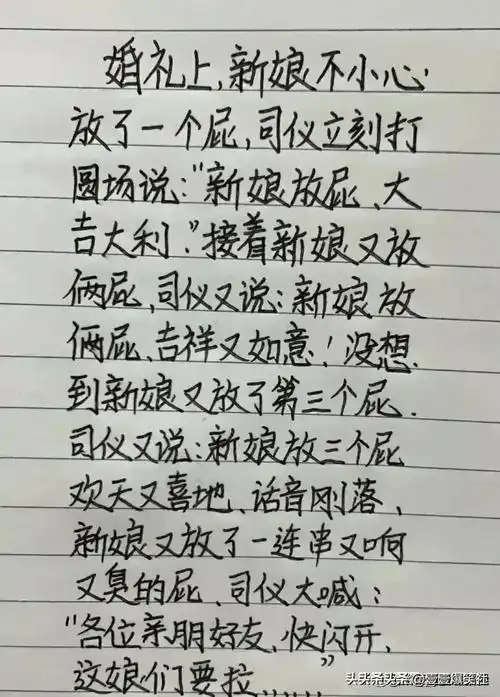 婚礼上,新娘不小心
放了一个屁,司仪立刻打
圆场说:"新娘放屁、大
吉大利."接着新娘又放
俩屁,司仪又说:新娘放
俩屁、吉祥又如意!没想
到新娘又放了第三个屁.
司仪又说:新娘放三个屁
欢天又喜地、话音刚落、
新娘又放了一连串又响
又臭的屁、司仪大喊:
"各位亲朋好友,快闪开,
这娘们要拉......"
头条@壹壹爆笑社